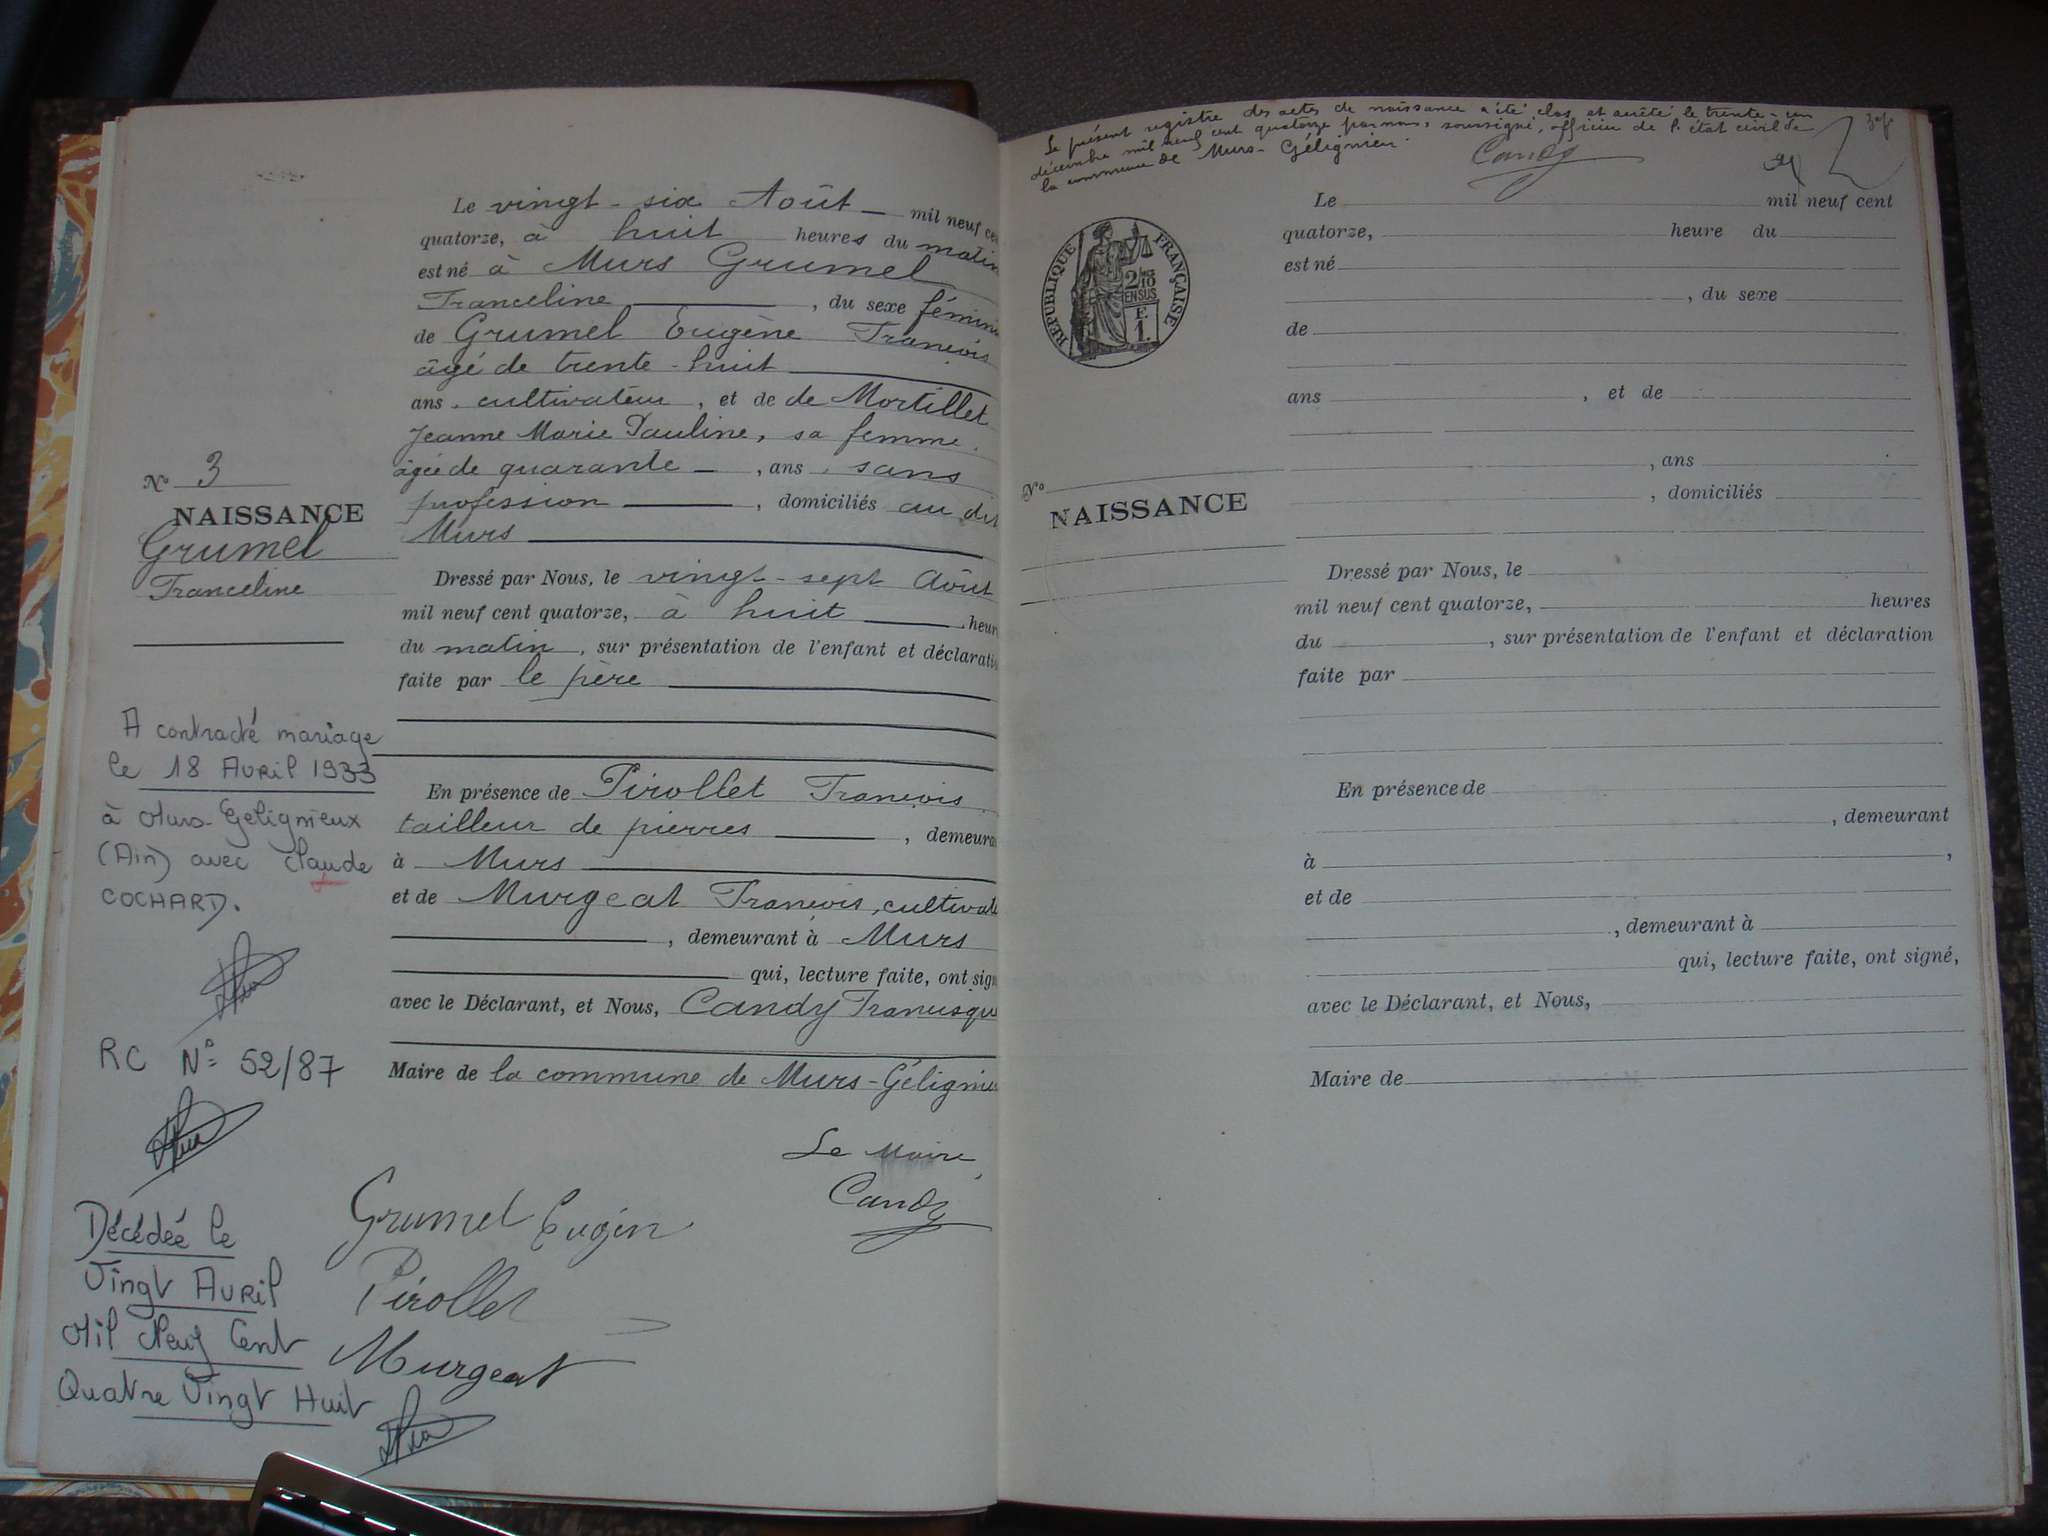 Le vingt-six Août — mil neuf ce
quatorze, à huit heures du matin
est né à Murs Grumel
Franceline , du sexe fémini
de Grumel Eugène François
âgé de trente-huit
ans, cultivateur, et de de Mortillet
Jeanne Marie Pauline, sa femme,
âgée de quarante — , ans, sans
profession , domiciliés au dit
Murs
N° 3
NAISSANCE
Grumel
Franceline
Dressé par Nous, le vingt-sept Août
mil neuf cent quatorze, à huit heur
du matin, sur présentation de l'enfant et déclarati
faite par le père
A contracté mariage
le 18 Avril 1933
à Murs-Gelignieux
(Ain) avec Claude
COCHARD.
RC N° 52/87
Décédée le
Vingt Avril
Mil Neuf Cent
Quatre Vingt Huit
En présence de Pirollet François
tailleur de pierres , demeura
à Murs
et de Murgeat François, cultivate
, demeurant à Murs
qui, lecture faite, ont sign
avec le Déclarant, et Nous, Candy Francisque
Maire de la commune de Murs-Gélignieu
Le Maire,
Candy
Grumel Eugèn
Pirollet
Murgeat
Le présent registre des actes de naissance a été clos et arrêté le trente-un
décembre mil neuf cent quatorze par nous, soussigné, officier de l'état civil de
la commune de Murs-Gélignieu.
Candy
REPUBLIQUE FRANÇAISE
2/10
EN SUS
F.
1.
Le mil neuf cent
quatorze, heure du
est né
, du sexe
de
ans , et de
, ans
, domiciliés
N°
NAISSANCE
Dressé par Nous, le
mil neuf cent quatorze, heures
du , sur présentation de l'enfant et déclaration
faite par
En présence de
, demeurant
à ,
et de
, demeurant à
qui, lecture faite, ont signé,
avec le Déclarant, et Nous,
Maire de